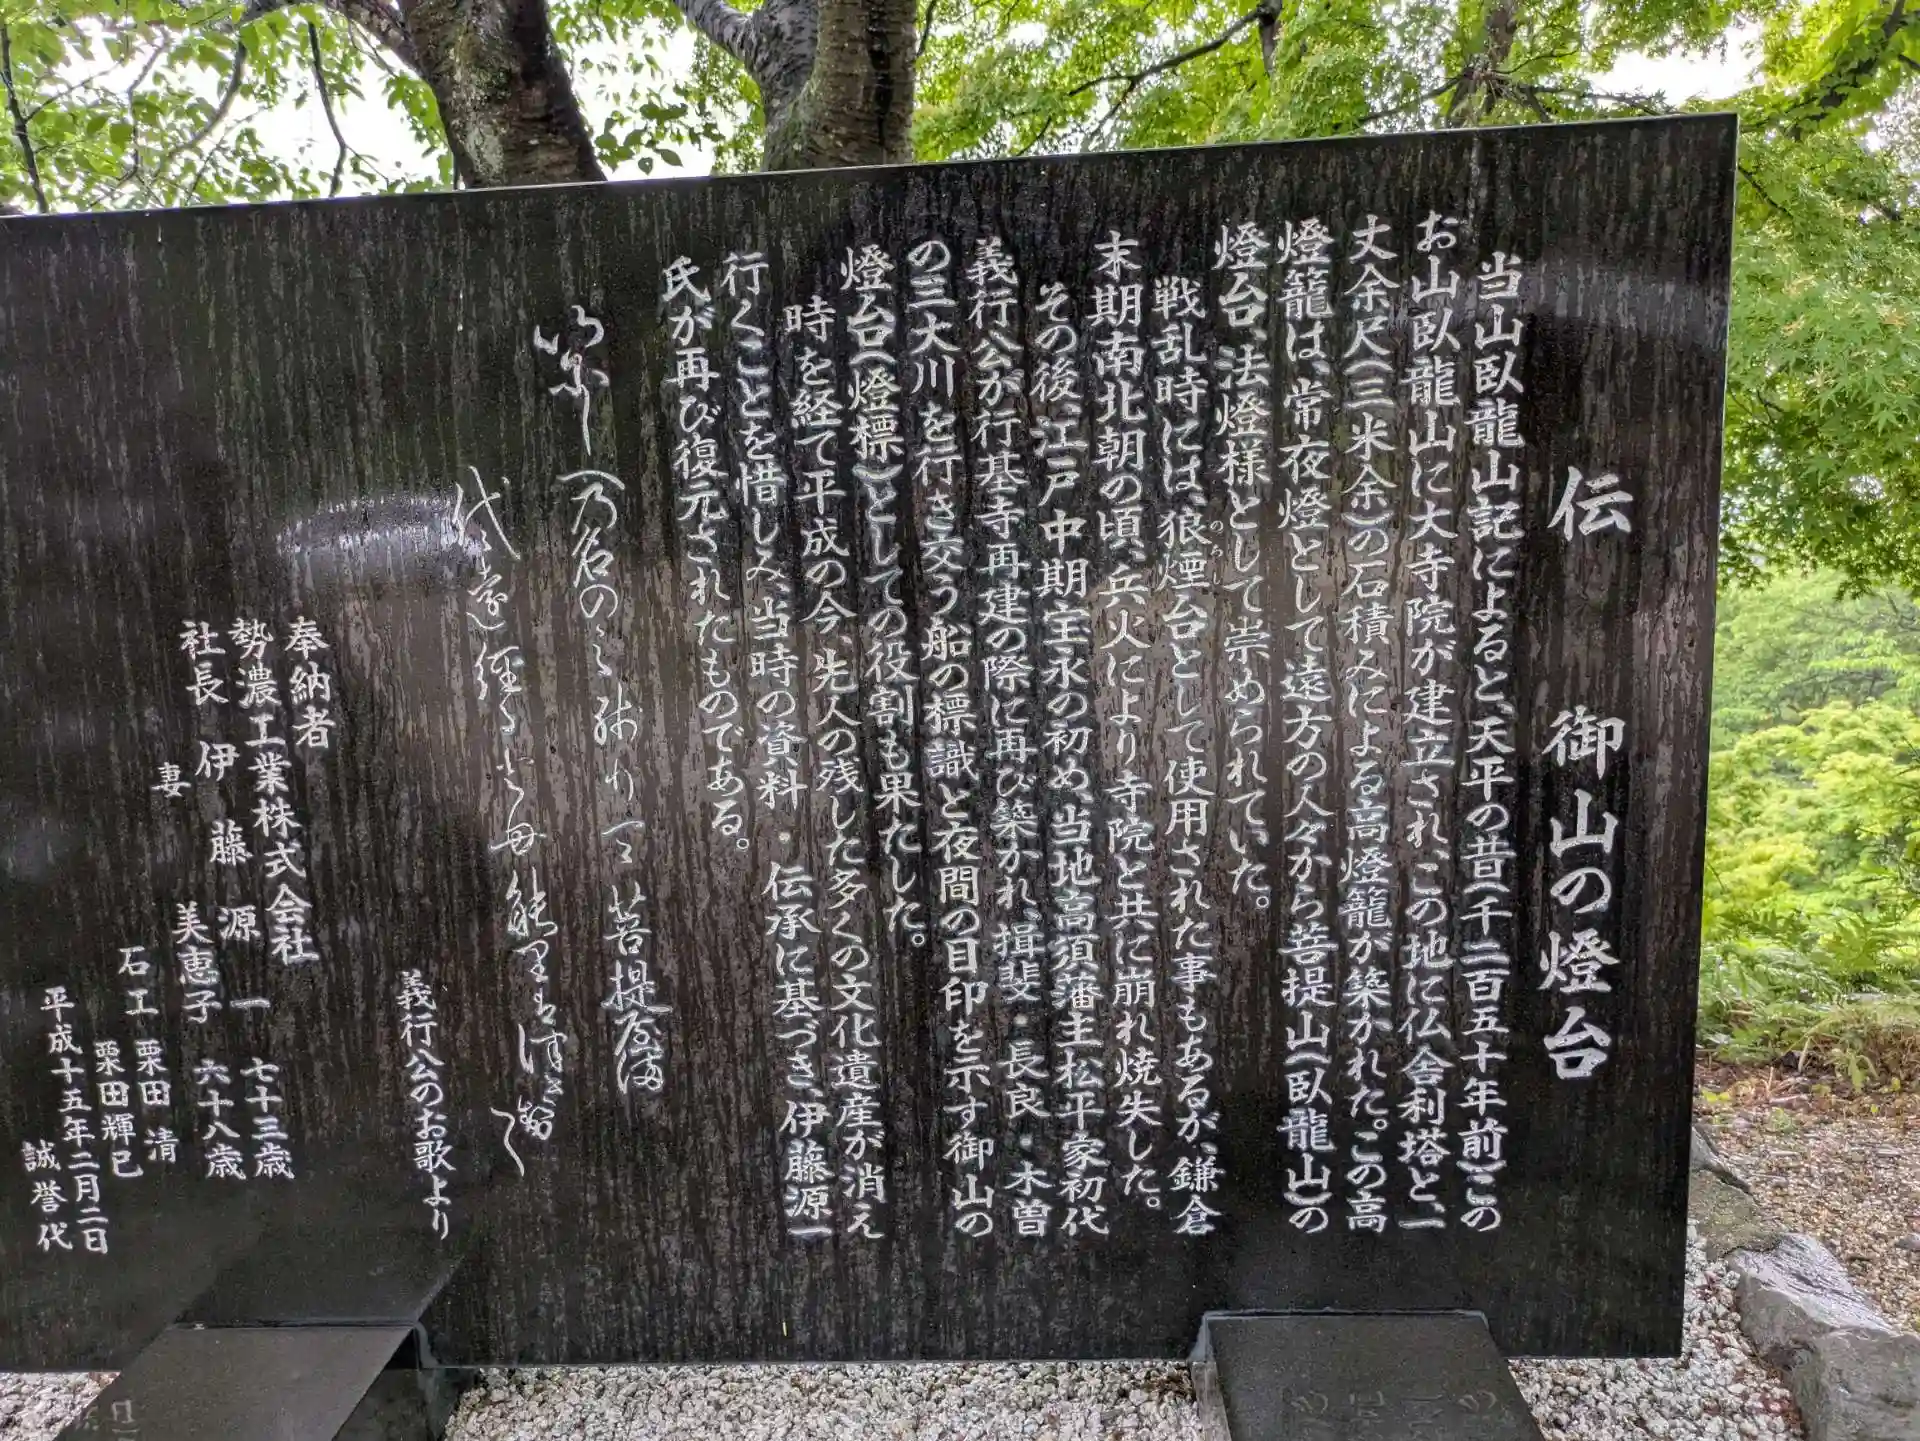 伝 御山の燈台
当山臥龍山記によると、天平の昔(千二百五十年前)この
お山臥龍山に大寺院が建立され、この地に仏舎利塔と、一
丈余尺(三米余)の石積みによる高燈籠が築かれた。この高
燈籠は、常夜燈として遠方の人々から菩提山(臥龍山)の
燈台、法燈様として崇められていた。
戦乱時には、狼煙台として使用された事もあるが、鎌倉
のろし
末期南北朝の頃、兵火により寺院と共に崩れ焼失した。
その後、江戸中期宝永の初め、当地高須藩主松平家初代
義行公が行基寺再建の際に再び築かれ、揖斐・長良・木曽
の三大川を行き交う船の標識と夜間の目印を示す御山の
燈台(燈標)としての役割も果たした。
時を経て平成の今、先人の残した多くの文化遺産が消え
行くことを惜しみ、当時の資料・伝承に基づき、伊藤源一
氏が再び復元されたものである。
菩提
義行公のお歌より
奉納者
勢濃工業株式会社
社長 伊藤源一 七十三歳
妻 美恵子 六十八歳
石工 栗田清
栗田輝已
平成十五年二月二日
誠誉代